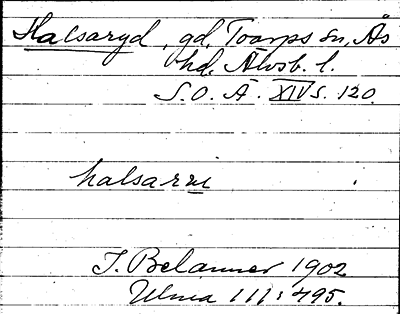 Halsaryd, gd, Toarps sn, Ås
hd. Älvsb. l.
S. O. Ä. XIV s. 120.
halsarɯ
J. Belanner 1902
Ulma 111: 495.